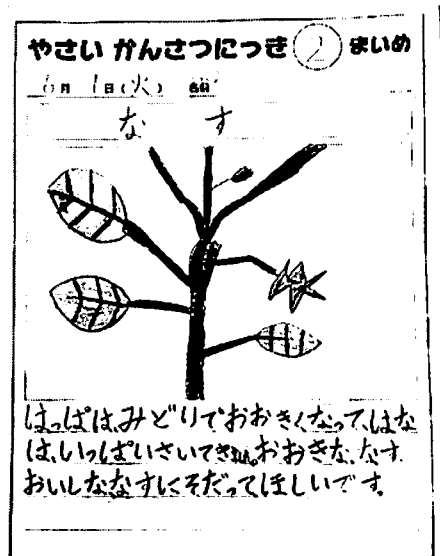 やさい かんさつにっき ② まいめ
6月 1日(火)
なす
はっぱは、みどりでおおきくなって、はな
は、いっぱいさいてきれい。おおきな、なす。
おいしななすにそだってほしいです。